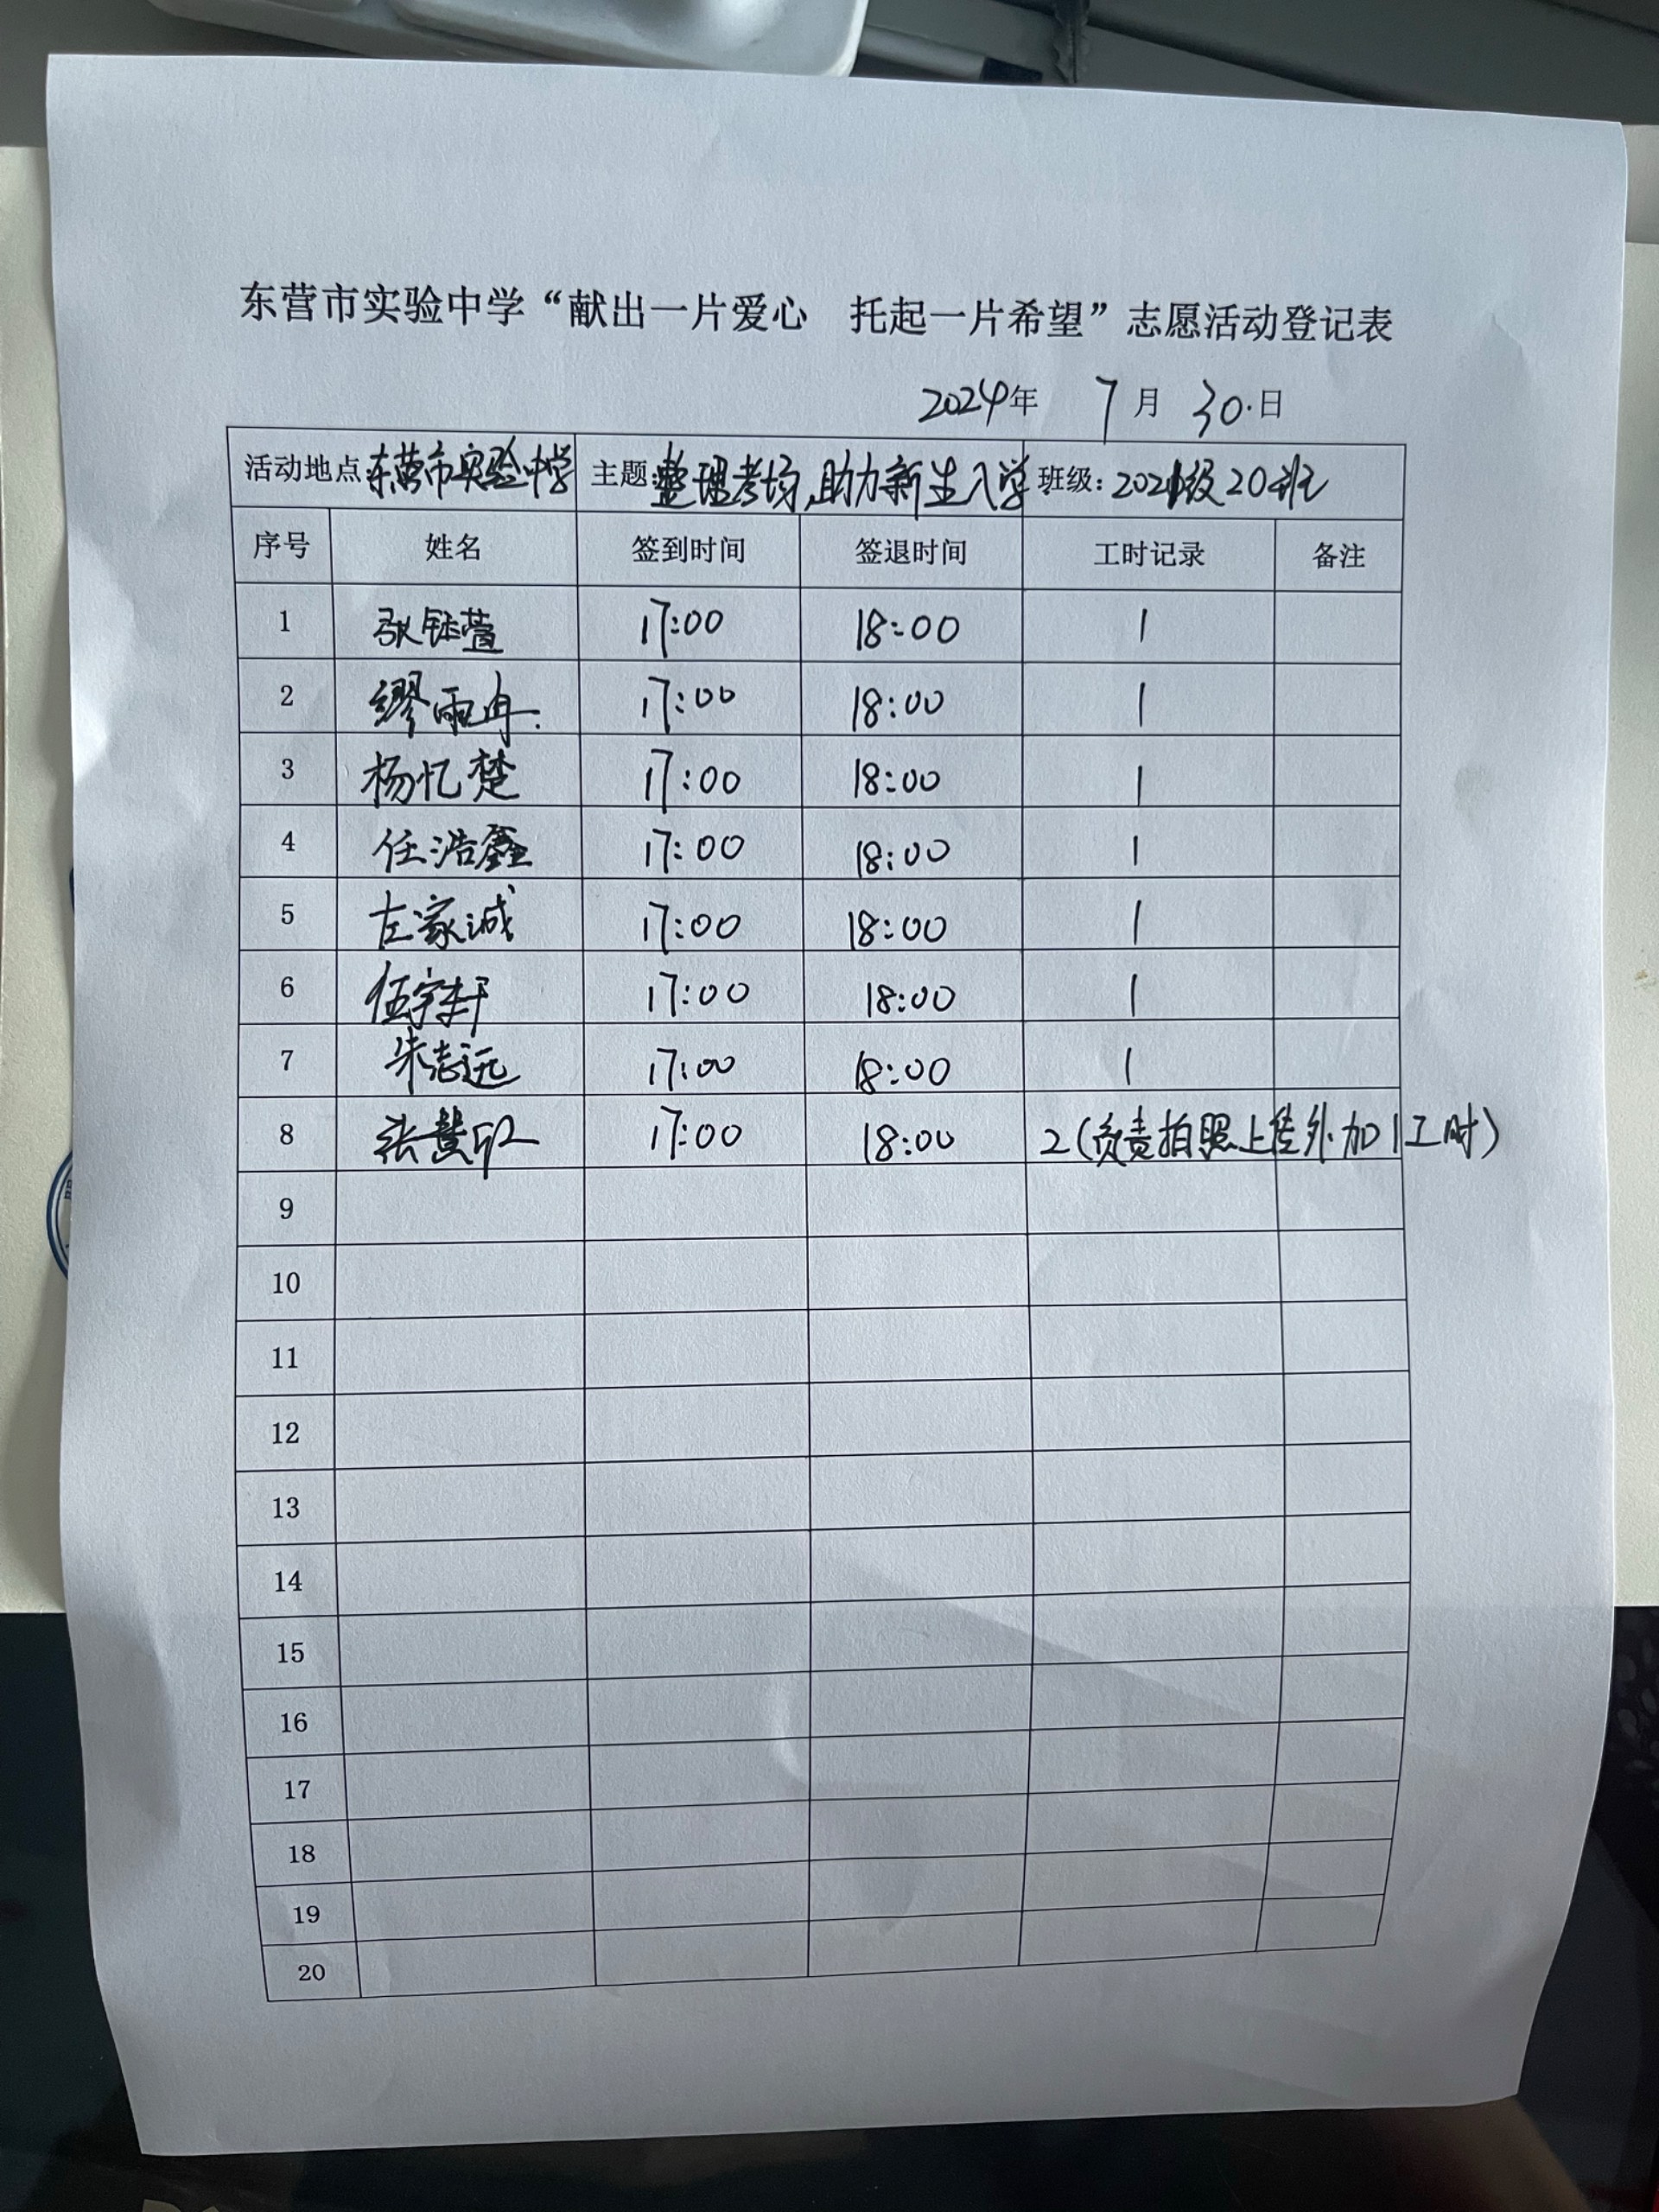 东营市实验中学“献出一片爱心 托起一片希望”志愿活动登记表
2024年 7月 30日
活动地点:东营市实验中学 主题:整理考场,助力新生入学 班级:2021级20班
序号 姓名 签到时间 签退时间 工时记录 备注
1 张钰萱 17:00 18:00 1
2 缪雨舟 17:00 18:00 1
3 杨忆楚 17:00 18:00 1
4 任浩鑫 17:00 18:00 1
5 左家诚 17:00 18:00 1
6 伍宇轩 17:00 18:00 1
7 朱志远 17:00 18:00 1
8 张慧 17:00 18:00 2(负责拍照上传外加1工时)
9
10
11
12
13
14
15
16
17
18
19
20